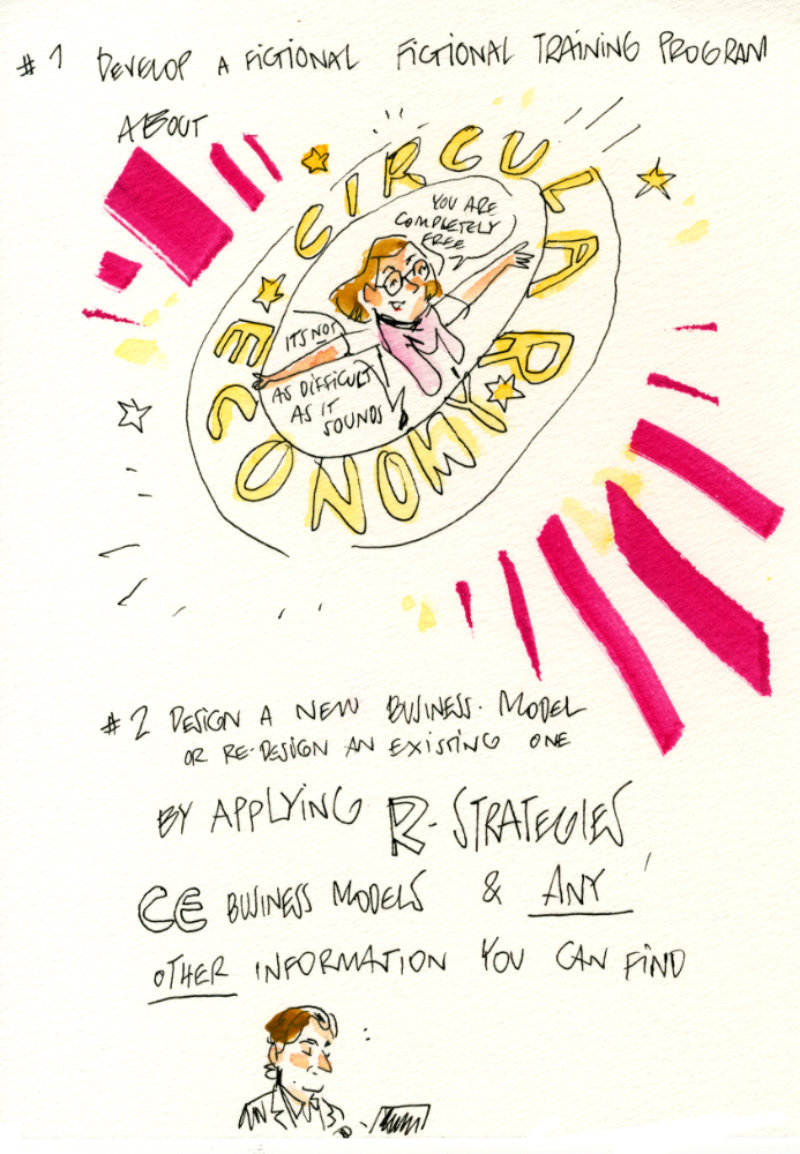 # 1 DEVELOP A FICTIONAL FICTIONAL TRAINING PROGRAM
ABOUT
CIRCULAR
ECONOMY
YOU ARE
COMPLETELY
FREE
ITS NOT
AS DIFFICULT
AS IT
SOUNDS
# 2 DESIGN A NEW BUSINESS MODEL
OR RE-DESIGN AN EXISTING ONE
BY APPLYING R-STRATEGIES
CE BUSINESS MODELS & ANY
OTHER INFORMATION YOU CAN FIND